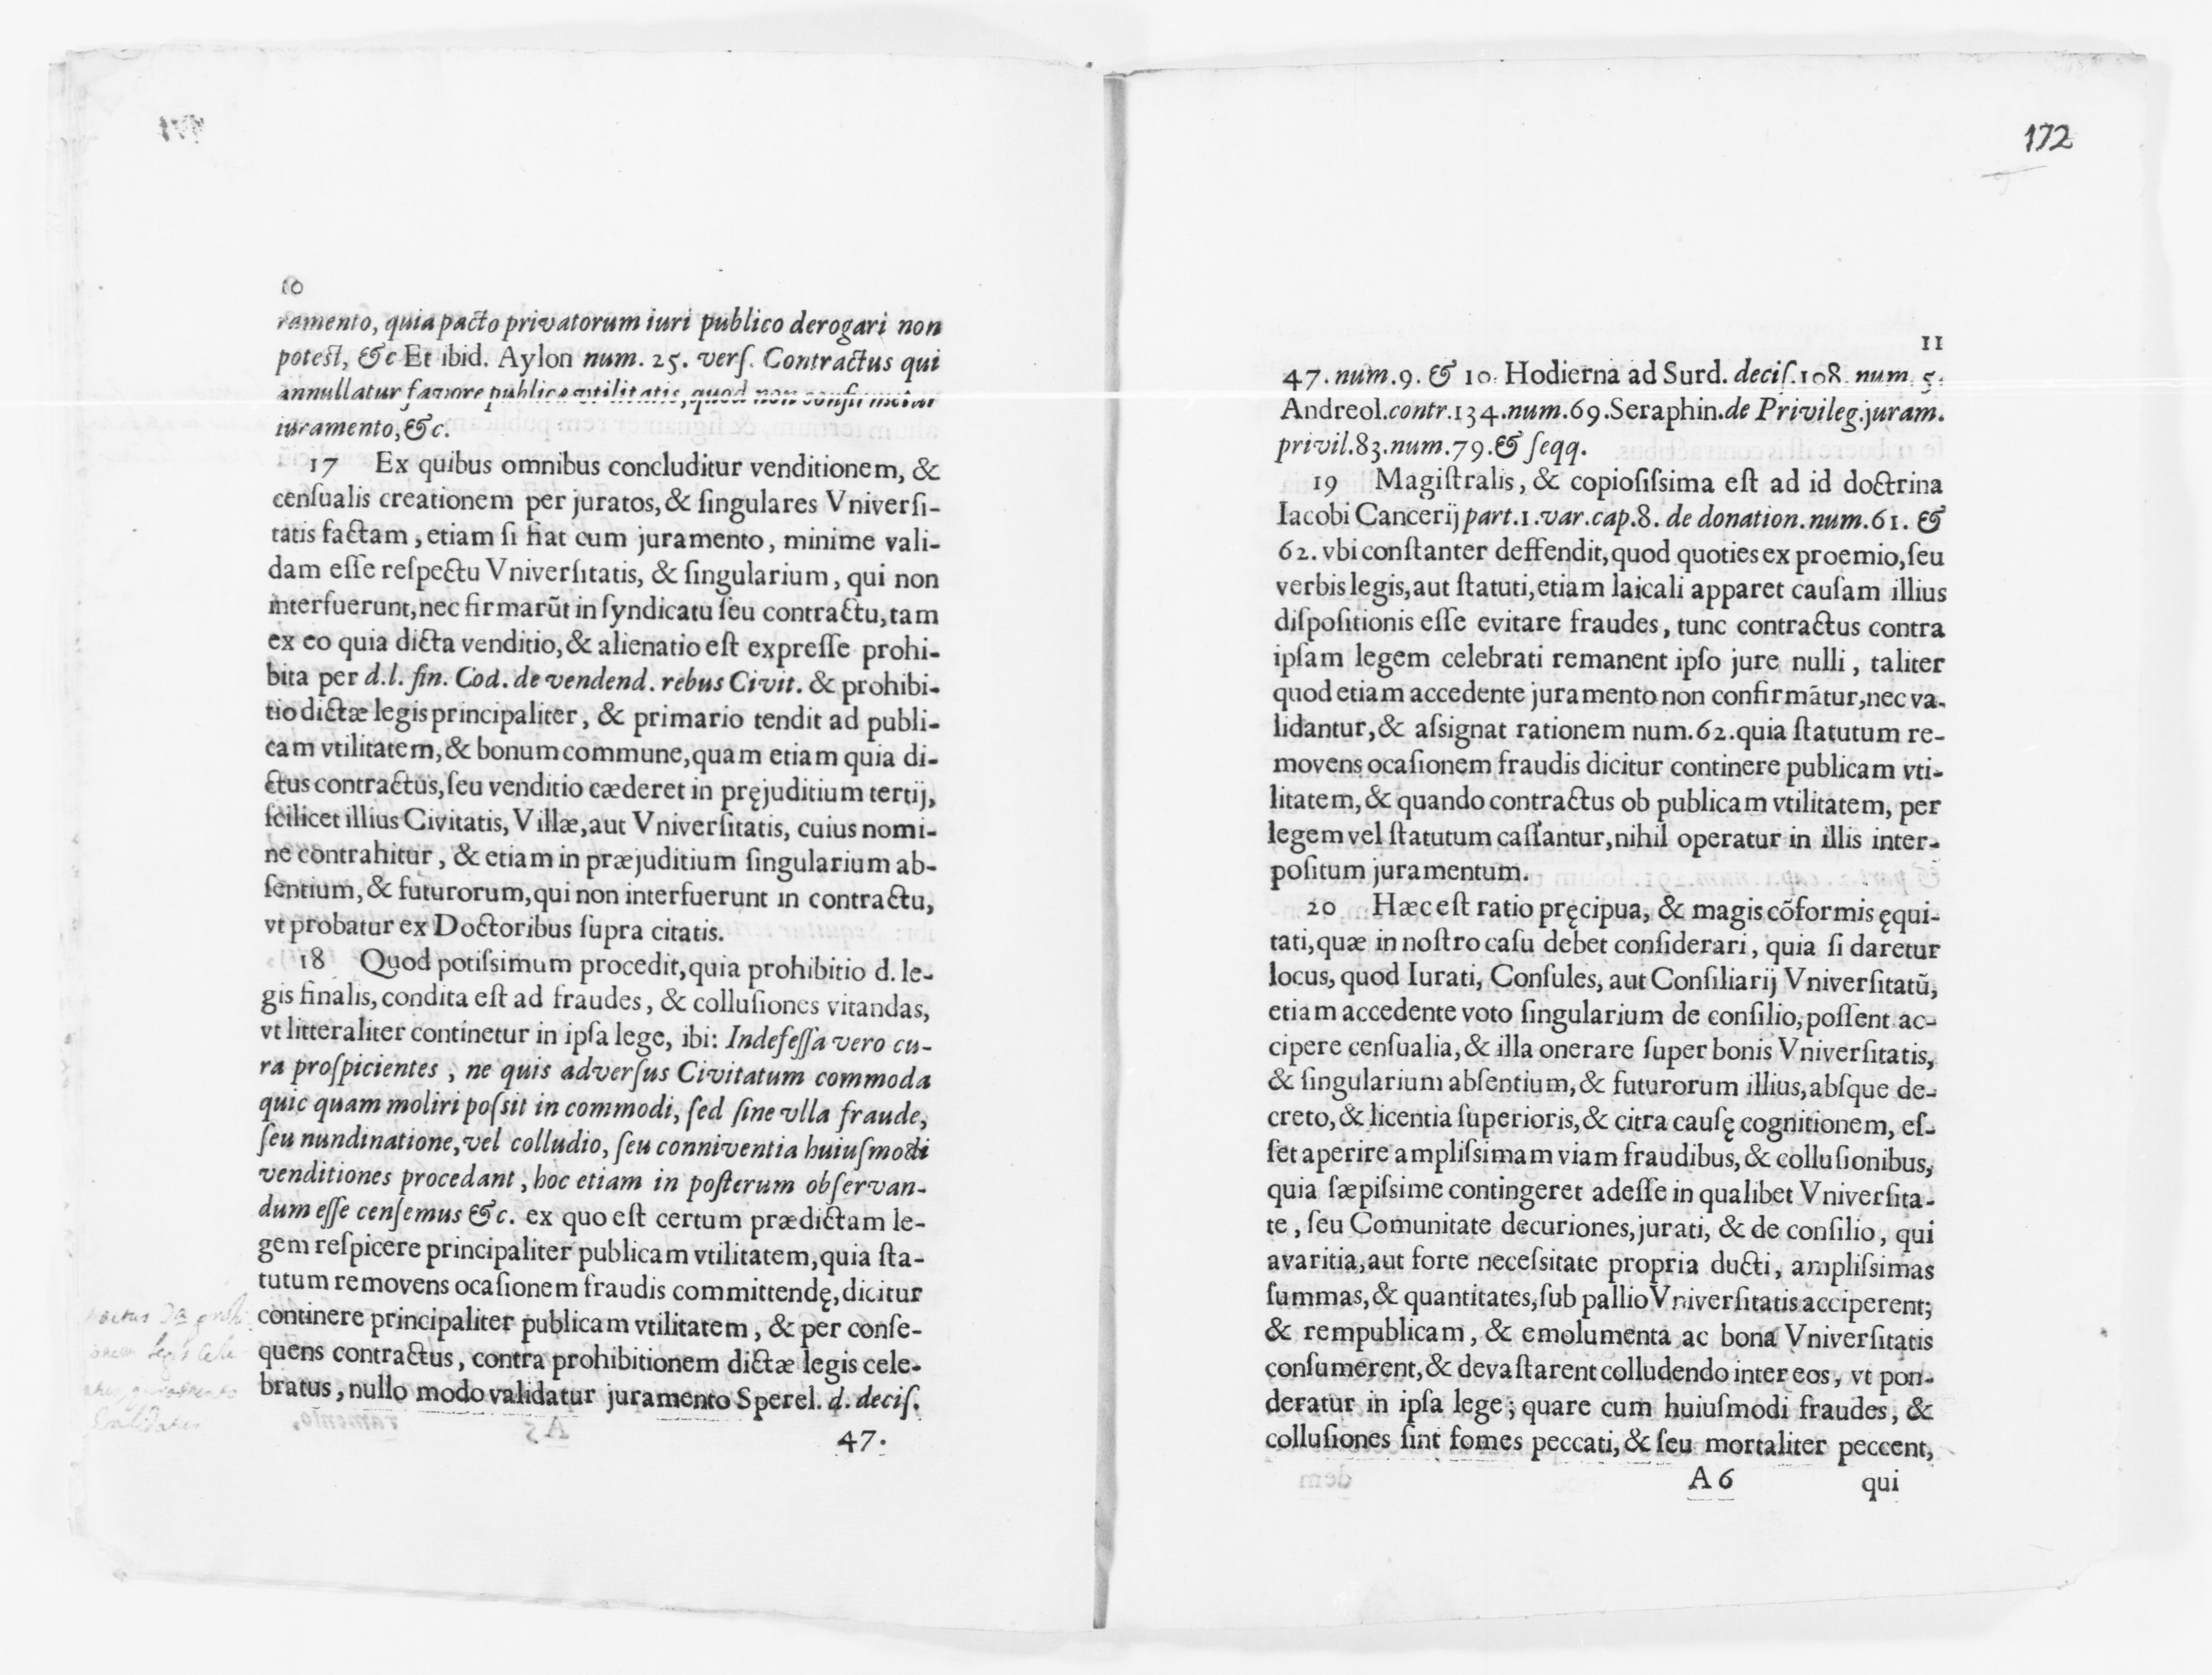 10
ramento, quia pacto privatorum iuri publico derogari non
potest, &c Et ibid. Aylon num. 25. verſ. Contractus qui
annullatur favore publicæ vtilitatis, quod non confirmetur
iuramento, &c.
17 Ex quibus omnibus concluditur venditionem, &
cenſualis creationem per juratos, & ſingulares Vniverſi-
tatis factam, etiam ſi fiat cum juramento, minime vali-
dam eſſe reſpectu Vniverſitatis, & ſingularium, qui non
interfuerunt, nec firmarūt in ſyndicatu ſeu contractu, tam
ex eo quia dicta venditio, & alienatio eſt expreſſe prohi-
bita per d. l. fin. Cod. de vendend. rebus Civit. & prohibi-
tio dictæ legis principaliter, & primario tendit ad publi-
cam vtilitatem, & bonum commune, quam etiam quia di-
ctus contractus, ſeu venditio cæderet in pręjuditium tertij,
ſcilicet illius Civitatis, Villæ, aut Vniverſitatis, cuius nomi-
ne contrahitur, & etiam in præjuditium ſingularium ab-
ſentium, & futurorum, qui non interfuerunt in contractu,
vt probatur ex Doctoribus ſupra citatis.
18 Quod potiſsimum procedit, quia prohibitio d. le-
gis finalis, condita eſt ad fraudes, & colluſiones vitandas,
vt litteraliter continetur in ipſa lege, ibi: Indefeſſa vero cu-
ra proſpicientes, ne quis adverſus Civitatum commoda
quic quam moliri poſsit in commodi, ſed ſine vlla fraude,
ſeu nundinatione, vel colludio, ſeu conniventia huiuſmodi
venditiones procedant, hoc etiam in poſterum obſervan-
dum eſſe cenſemus &c. ex quo eſt certum prædictam le-
gem reſpicere principaliter publicam vtilitatem, quia ſta-
tutum removens ocaſionem fraudis committendę, dicitur
continere principaliter publicam vtilitatem, & per conſe-
quens contractus, contra prohibitionem dictæ legis cele-
bratus, nullo modo validatur juramento Sperel. d. deciſ.
47.
172
11
47. num. 9. & 10. Hodierna ad Surd. deciſ. 108. num. 5.
Andreol. contr. 134. num. 69. Seraphin. de Privileg. juram.
privil. 83. num. 79. & ſeqq.
19 Magiſtralis, & copioſiſsima eſt ad id doctrina
Iacobi Cancerij part. 1. var. cap. 8. de donation. num. 61. &
62. vbi conſtanter deffendit, quod quoties ex proemio, ſeu
verbis legis, aut ſtatuti, etiam laicali apparet cauſam illius
diſpoſitionis eſſe evitare fraudes, tunc contractus contra
ipſam legem celebrati remanent ipſo jure nulli, taliter
quod etiam accedente juramento non confirmātur, nec va-
lidantur, & aſsignat rationem num. 62. quia ſtatutum re-
movens ocaſionem fraudis dicitur continere publicam vti-
litatem, & quando contractus ob publicam vtilitatem, per
legem vel ſtatutum caſſantur, nihil operatur in illis inter-
poſitum juramentum.
20 Hæc eſt ratio pręcipua, & magis cōformis ęqui-
tati, quæ in noſtro caſu debet conſiderari, quia ſi daretur
locus, quod Iurati, Conſules, aut Conſiliarij Vniverſitatū,
etiam accedente voto ſingularium de conſilio, poſſent ac-
cipere cenſualia, & illa onerare ſuper bonis Vniverſitatis,
& ſingularium abſentium, & futurorum illius, abſque de-
creto, & licentia ſuperioris, & citra cauſę cognitionem, eſ-
ſet aperire ampliſsimam viam fraudibus, & colluſionibus,
quia ſæpiſsime contingeret adeſſe in qualibet Vniverſita-
te, ſeu Comunitate decuriones, jurati, & de conſilio, qui
avaritia, aut forte neceſsitate propria ducti, ampliſsimas
ſummas, & quantitates, ſub pallio Vniverſitatis acciperent;
& rempublicam, & emolumenta ac bona Vniverſitatis
conſumerent, & devaſtarent colludendo inter eos, vt pon-
deratur in ipſa lege; quare cum huiuſmodi fraudes, &
colluſiones ſint fomes peccati, & ſeu mortaliter peccent,
A 6 qui